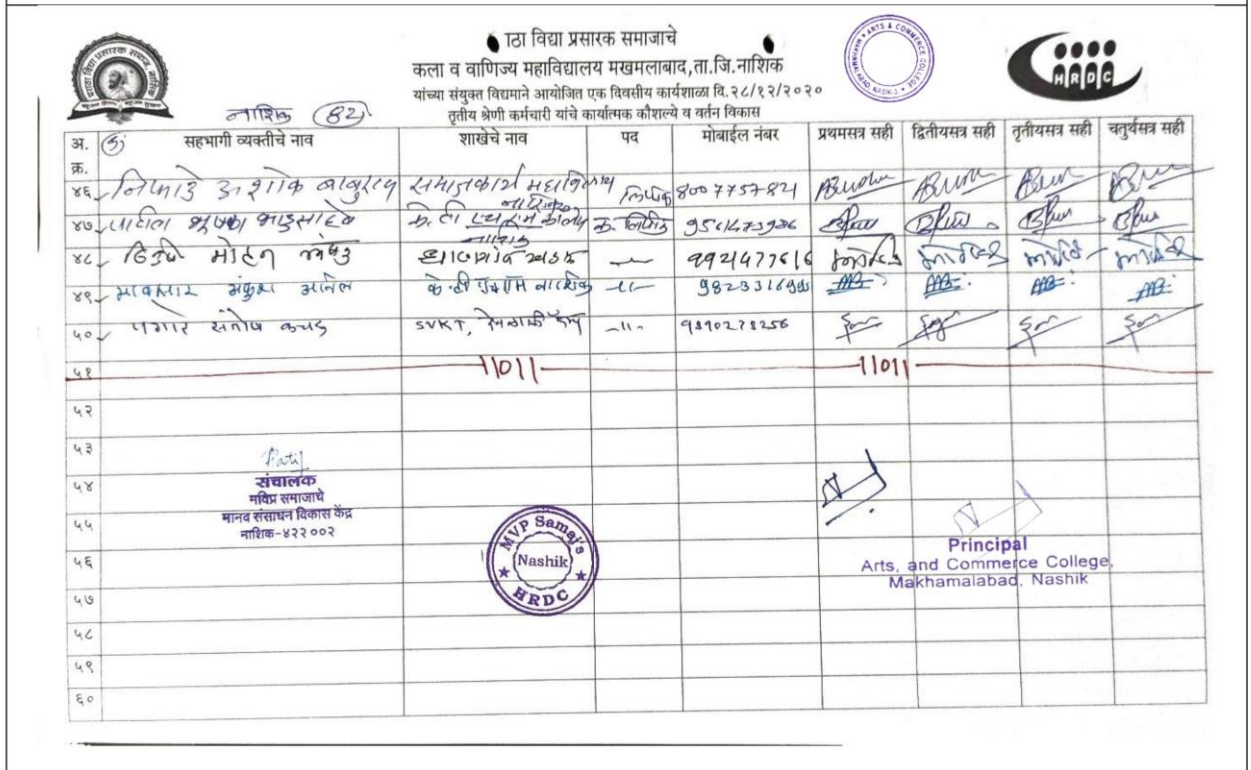 ाठा विद्या प्रसारक समाजाचे
कला व वाणिज्य महाविद्यालय मखमलाबाद,ता.जि.नाशिक
यांच्या संयुक्त विद्यमाने आयोजित एक दिवसीय कार्यशाळा दि.२८/१२/२०२०
तृतीय श्रेणी कर्मचारी यांचे कार्यात्मक कौशल्ये व वर्तन विकास
ARTS & COMMERCE COLLEGE
HRDC
नाशिक 82
अ. क्र. सहभागी व्यक्तीचे नाव शाखेचे नाव पद मोबाईल नंबर प्रथमसत्र सही द्वितीयसत्र सही तृतीयसत्र सही चतुर्थसत्र सही
४६ अशोक बाबुराव समाजकार्य महाविद्यालय नाशिक लिपिक 8007757821
४७ पाटील भूषण भाऊसाहेब के. टी. एच एम कॉलेज नाशिक क. लिपिक
४८ मोहन
४९ भावसार अंकुश अनिल के टी एच एम नाशिक -11-
५० पगार संतोष कचरू SVKT, देवळाली कॅम्प -11- 9890278256
५१ 11011 11011
५२
५३
५४
५५
५६
५७
५८
५९
६०
Patil
संचालक
मविप्र समाजाचे
मानव संसाधन विकास केंद्र
नाशिक-४२२ ००२
MVP Samaj's
Nashik
HRDC
Principal
Arts, and Commerce College,
Makhamalabad, Nashik